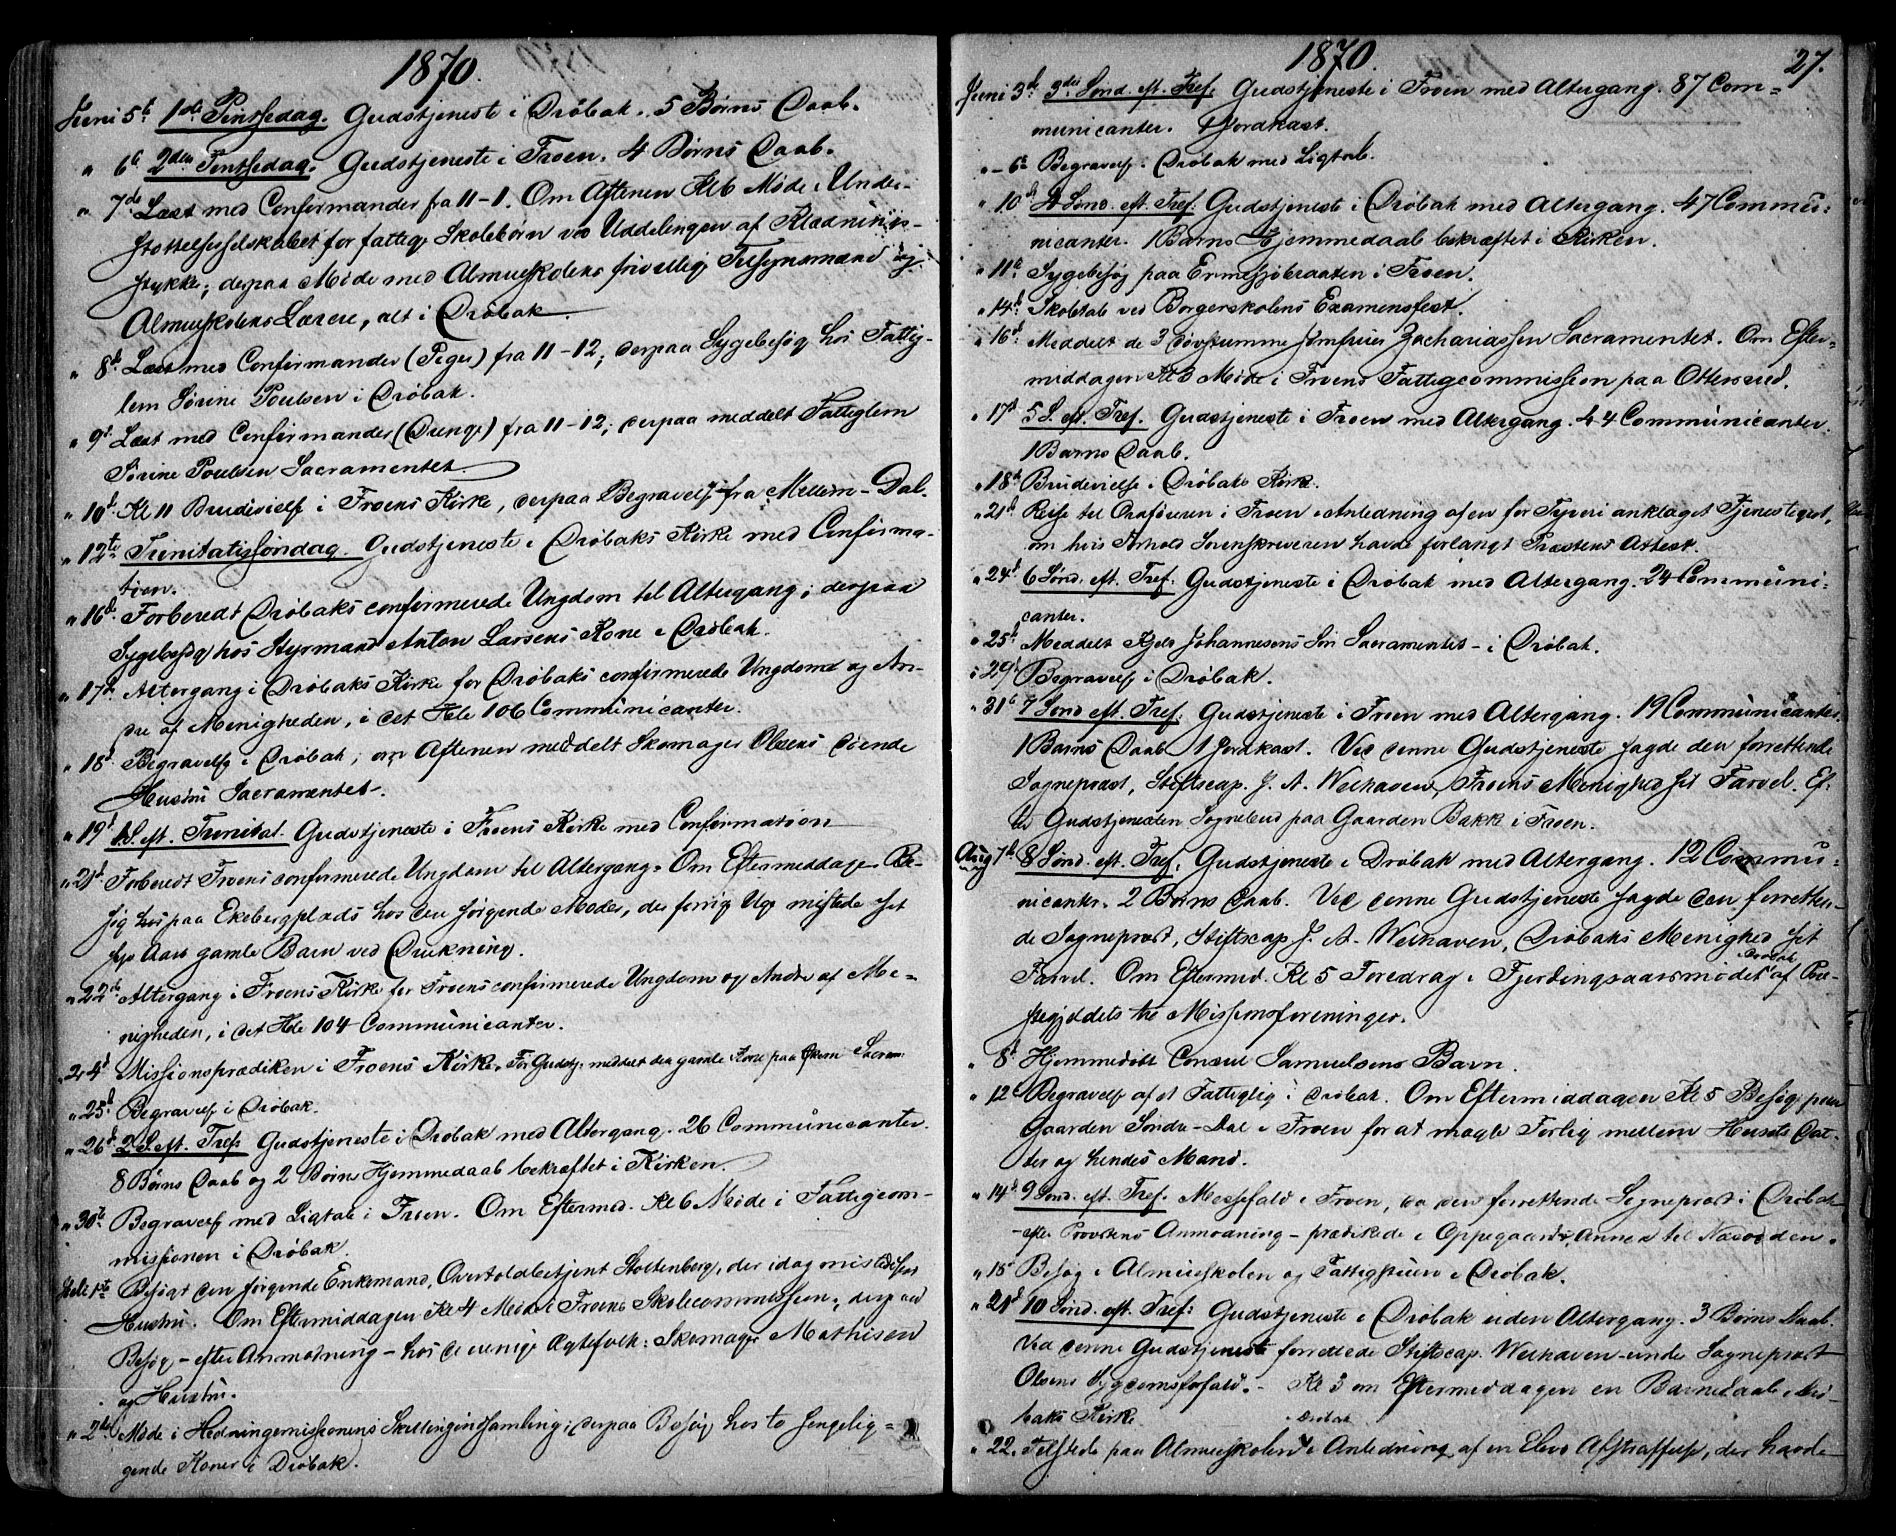 1870.
Juni 5t 1ste Pintsedag. Gudstjeneste i Drøbak. 5 Børns Daab.
" 6t 2den Pintsedag. Gudstjeneste i Froen. 4 Børns Daab.
" 7de Læst med Confirmander fra 11-1. Om Aftenen Kl 6 Møde i Under-
støttelsesselskabet for fattige Skolebørn ved Uddelingen af Klædnings-
stykker; derpaa Møde med Almueskolens frivillige Tilsynsmænd og
Almueskolens Lærere, alt i Drøbak.
" 8d Læst med Confirmander (Piger) fra 11-12; derpaa Sygebesøg hos Fattig-
lem Sørine Poulsen i Drøbak.
" 9d Læst med Confirmander (Drenge) fra 11-12; derpaa meddelt Fattiglem
Sørine Poulsen Sacramentet.
" 10d Kl 11 Brudevielse i Froens Kirke, derpaa Begravelse fra Mellem-Dal.
" 12te Trinitatissøndag. Gudstjeneste i Drøbaks Kirke med Confirma-
tion.
" 16d Forberedt Drøbaks confirmerede Ungdom til Altergang; derpaa
Sygebesøg hos Styrmand Anton Larsens Kone i Drøbak.
" 17d Altergang i Drøbaks Kirke for Drøbaks confirmerede Ungdom og An-
dre af Menigheden, i det Hele 106 Communicanter.
" 18d Begravelse i Drøbak; om Aftenen meddelt Skomager Olsens døende
Hustru Sacramentet.
" 19d 1 S. eft. Trinitat. Gudstjeneste i Froens Kirke med Confirmation
" 21d Forberedt Froens confirmerede Ungdom til Altergang. Om Eftermiddagen Be-
søg hos paa Ekebergplads hos den sørgende Moder, der forrige Uge mistede sit
Aars gamle Barn ved Drukning.
" 22d Altergang i Froens Kirke for Froens confirmerede Ungdom og Andre af Me-
nigheden, i det Hele 104 Communicanter.
" 24d Missionsprædiken i Froens Kirke. Før Gudstj. meddelt den gamle Kone paa Sacram.
" 25d Begravelse i Drøbak.
" 26d 2 S. eft. Tref. Gudstjeneste i Drøbak med Altergang. 26 Communicanter.
8 Børns Daab og 2 Børns Hjemmedaab bekræftet i Kirken.
" 30te Begravelse med Ligtale i Froen. Om Eftermid. Kl 6 Møde i Fattigcom-
missionen i Drøbak.
Juli 1ste Besøgt den sørgende Enkemand, Overtoldbetjent Stoltenberg, der idag mistede sin
Hustru. Om Eftermiddagen Kl 4 Møde i Froens Skolecommission; derpaa
Besøg - efter Anmodning - hos de uenige Ægtefolk: Skomager Mathisen
og Hustru.
" 2den Møde i Hedningemissionens Skillingsindsamling; derpaa Besøg hos to sengelig-
gende Koner i Drøbak.
1870. 27.
Juni 3d 3die Sønd. eft. Tref. Gudstjeneste i Froen med Altergang. 87 Com-
municanter. 1 Jordkast.
" - 6te Begravelse i Drøbak med Ligtale.
" 10d 4 Sønd. eft. Tref: Gudstjeneste i Drøbak med Altergang. 47 Commu-
nicanter. 1 Barns Hjemmedaab bekræftet i Kirken.
" 11te Sygebesøg paa i Froen.
" 14d Skoletale ved Borgerskolens Examensfest.
" 16d Meddelt de 3 døvstumme Jomfruer Zachariassen Sacramentet. Om Efter-
middagen Kl 3 Møde i Froens Fattigcommission paa Ottersrud.
" 17d 5 S. eft. Tref. Gudstjeneste i Froen med Altergang. 44 Communicanter.
1 Barns Daab.
" 18d Brudevielse i Drøbaks Kirke.
" 21d Reise til i Froen i Anledning af en for Tyveri anklaget Tjenestegut,
om hvis Forhold Sorenskriveren havde forlangt Præstens Attest.
" 24d 6 Sønd. eft. Tref. Gudstjeneste i Drøbak med Altergang. 24 Communi-
canter.
" 25d Meddelt Kjeld Johannesens Søn Sacramentet - i Drøbak.
" 29d Begravelse i Drøbak.
" 31te 7 Sønd. eft. Tref: Gudstjeneste i Froen med Altergang. 19 Communicanter.
1 Barns Daab. 1 Jordkast. Ved denne Gudstjeneste sagde den forrettende
Sognepræst, Stiftscap. J. A. Welhaven, Froens Menighed sit Farvel. Ef-
ter Gudstjenesten Sognebud paa Gaarden Bakke i Froen.
Aug 7d 8 Sønd. eft. Tref. Gudstjeneste i Drøbak med Altergang. 12 Commu-
nicanter. 2 Børns Daab. Ved denne Gudstjeneste sagde den forretten-
de Sognepræst, Stiftscap J. A. Welhaven, Drøbaks Menighed sit
Farvel. Om Eftermid. Kl 5 Foredrag i Fjerdingsaarsmødet af Drøbak Præ-
stegjeldets tre Missionsforeninger.
" 8d Hjemmedøbt Consul Samuelsens Barn.
" 12te Begravelse af et Fattiglig i Drøbak. Om Eftermiddagen Kl 5 Besøg paa
Gaarden Søndre-Dal i Froen for at mægle Forlig mellem Husets Dat-
ter og hendes Mand.
" 14d 9 Sønd. eft. Tref. Messefald i Froen, da den forrettende Sognepræst i Drøbak
- efter Provstens Anmodning - prædikede i Oppegaards, Annex til Næsodden.
" 15d Besøg i Almueskolen og Fattigstuen i Drøbak.
" 21d 10 Sønd. eft. Tref: Gudstjeneste i Drøbak uden Altergang. 3 Børns Daab.
Ved denne Gudstjeneste forrettede Stiftscap. Welhaven under Sognepræst
Olsens Sygdomsforfald. - Kl 3 om Eftermiddagen en Barnedaab i Drø-
baks Kirke.
" 22. Tilstede paa Almueskolen i Drøbak i Anledning af en Elevs Afstraffelse, der havde